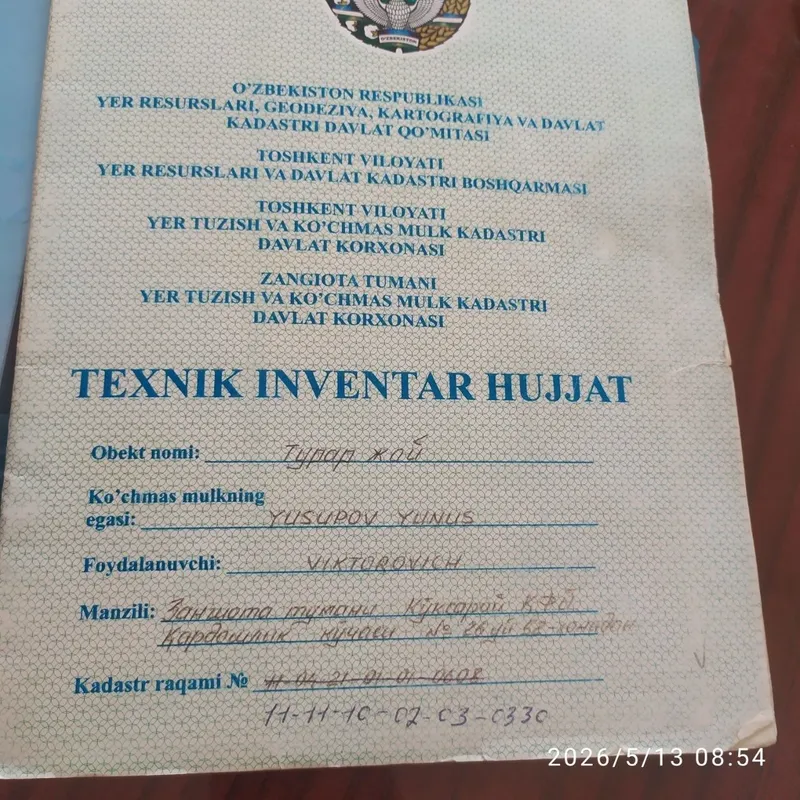 O'ZBEKISTON
O'ZBEKISTON RESPUBLIKASI
YER RESURSLARI, GEODEZIYA, KARTOGRAFIYA VA DAVLAT
KADASTRI DAVLAT QO'MITASI
TOSHKENT VILOYATI
YER RESURSLARI VA DAVLAT KADASTRI BOSHQARMASI
TOSHKENT VILOYATI
YER TUZISH VA KO'CHMAS MULK KADASTRI
DAVLAT KORXONASI
ZANGIOTA TUMANI
YER TUZISH VA KO'CHMAS MULK KADASTRI
DAVLAT KORXONASI
TEXNIK INVENTAR HUJJAT
Obekt nomi: Турар жой
Ko'chmas mulkning
egasi: YUSUPOV YUNUS
Foydalanuvchi: VIKTOROVICH
Manzili: Зангиота тумани Кўксарой Қ.Ф.Й.
Қардошлик кўчаси № 26 уй 52-хонадон
Kadastr raqami № 11-04-21-01-01-0608
11-11-10-02-03-0330
2026/5/13 08:54